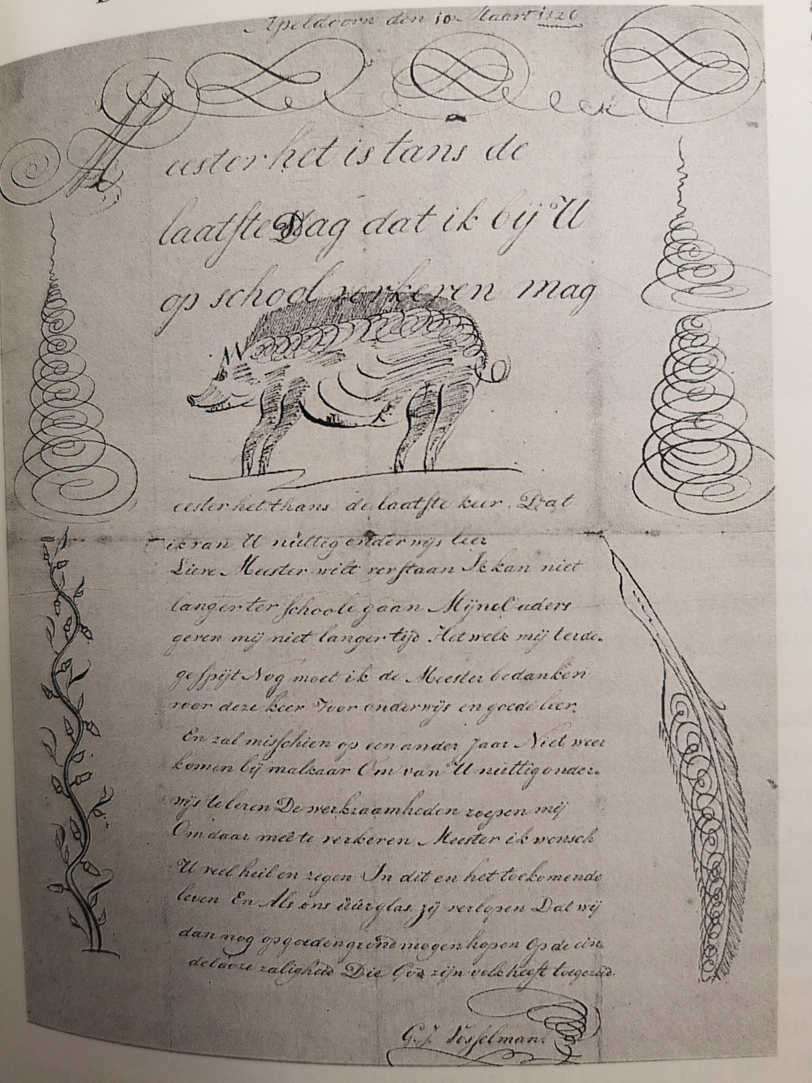 Apeldoorn den 10 Maart 1826
Meester het is tans de
laatste Dag dat ik bij U
op school verkeren mag
eester het thans de laatste keer. Dat
ik van U nuttig onderwijs leer
Lieve Meester wilt verstaan Ik kan niet
langer ter schoole gaan Mijne Ouders
geven mij niet langer tijd Het welk mij ter de.
ge spijt Nog moet ik de Meester bedanken
voor deze keer Voor onderwijs en goede leer.
En zal misschien op een ander Jaar Niet weer
komen bij malkaar Om van U nuttig onder.
wijs te leren De werkzaamheden roepen mij
Om daar meê te verkeren Meester ik wensch
U veel heil en zegen In dit en het toekomende
leven En Als ons uurglas zij verlopen Dat wij
dan nog op goeden grond mogen hopen Op de ein
delooze zaligheid Die God zijn volk heeft toegezeid
G. J.